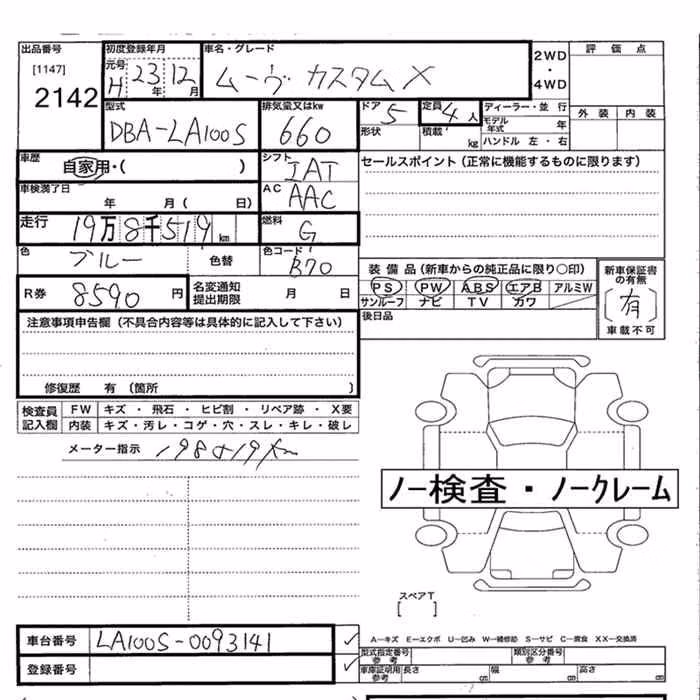 出品番号 初度登録年月 車名・グレード 2WD・4WD 評価点
[1147] 元号 H 23年 12月 ムーヴ カスタム X
2142 外装 内装
型式 排気量又はkw ドア 5 定員 4人 ディーラー・並行
DBA-LA100S 660 形状 積載 kg モデル年式 年
ハンドル 左・右
車歴 自家用・( ) シフト IAT セールスポイント(正常に機能するものに限ります)
車検満了日 年 月( 日) AC AAC
走行 19万8千519km 燃料 G
色 ブルー 色替 色コード B70
装備品(新車からの純正品に限り○印) 新車保証書の有無
R券 8590円 名変通知提出期限 月 日 PS PW ABS エアB アルミW 有
サンルーフ ナビ TV カワ 車載不可
注意事項申告欄(不具合内容等は具体的に記入して下さい) 後日品
修復歴 有(箇所 )
検査員記入欄 FW キズ・飛石・ヒビ割・リペア跡・X要
内装 キズ・汚レ・コゲ・穴・スレ・キレ・破レ
メーター指示
ノー検査・ノークレーム
スペアT
[ ]
車台番号 LA100S-0093141 ✓ A―キズ E―エクボ U―凹み W―補修跡 S―サビ C―腐食 XX―交換済
型式指定番号参考 類別区分番号参考
登録番号 ✓ 車庫証明用参考 長さ cm 幅 cm 高さ cm